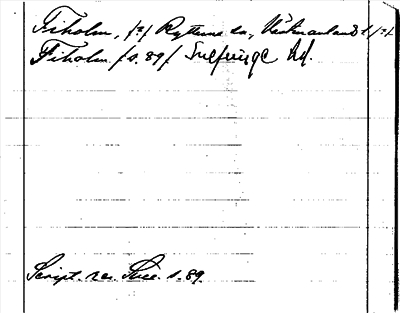 Fiholm, /=/ Rytterne sn, Västmanland /=/
Fiholm /s. 89/ Snefringe hd.
Script. rer. Svec. s. 89.